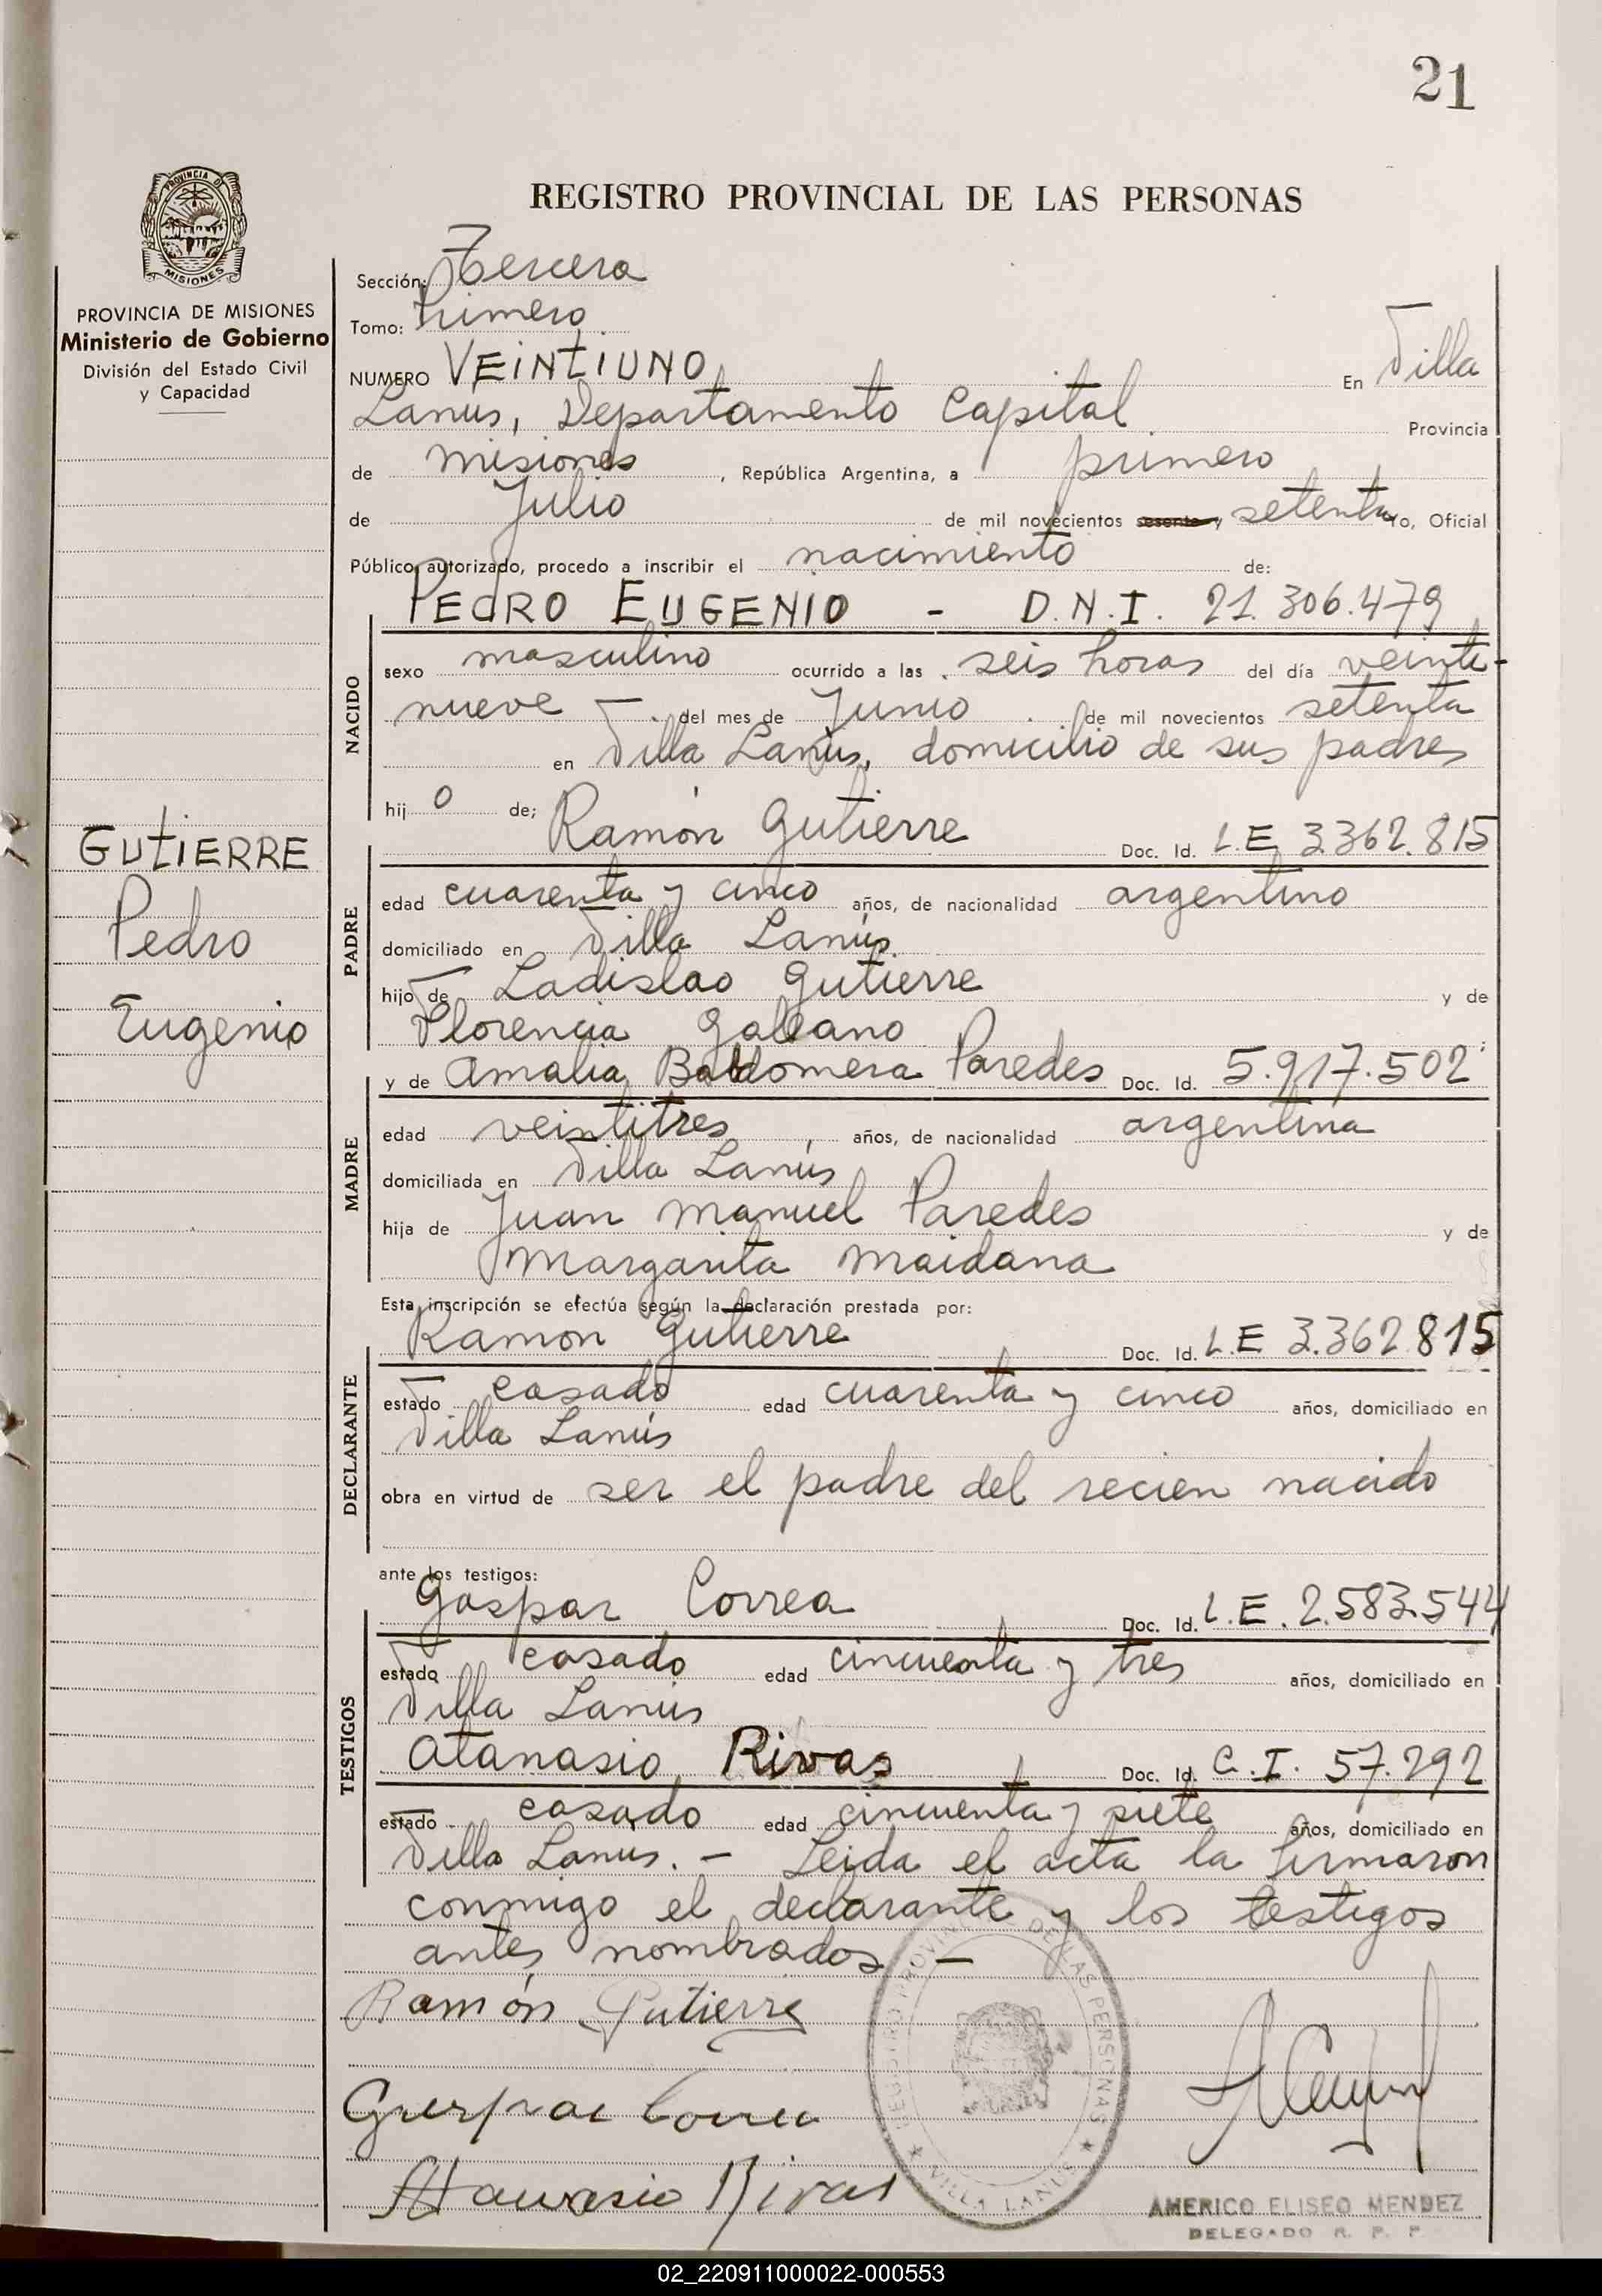 21
PROVINCIA DE
MISIONES
PROVINCIA DE MISIONES
Ministerio de Gobierno
División del Estado Civil
y Capacidad
GUTIERRE
Pedro
Eugenio
REGISTRO PROVINCIAL DE LAS PERSONAS
Sección: Tercera
Tomo: Primero
NUMERO VEINTIUNO En Villa
Lanús, Departamento Capital Provincia
de Misiones, República Argentina, a primero
de Julio de mil novecientos sesenta y setenta Yo, Oficial
Público autorizado, procedo a inscribir el nacimiento de:
PEDRO EUGENIO - D.N.I. 21.306.479
NACIDO
sexo masculino ocurrido a las seis horas del día veinti-
nueve del mes de Junio de mil novecientos setenta
en Villa Lanús, domicilio de sus padres
hijo de; Ramón Gutierre Doc. Id. L.E 3.362.815
PADRE
edad cuarenta y cinco años, de nacionalidad argentino
domiciliado en Villa Lanús
hijo de Ladislao Gutierre y de
Florencia Galeano
y de Amalia Baldomera Paredes Doc. Id. 5.917.502
MADRE
edad veintitres, años, de nacionalidad argentina
domiciliada en Villa Lanús
hija de Juan Manuel Paredes y de
Margarita Maidana
Esta inscripción se efectúa según la declaración prestada por:
Ramon Gutierre Doc. Id. L.E 3.362.815
DECLARANTE
estado casado edad cuarenta y cinco años, domiciliado en
Villa Lanús
obra en virtud de ser el padre del recien nacido
ante los testigos:
Gaspar Correa Doc. Id. L.E. 2.583.544
TESTIGOS
estado casado edad cincuenta y tres años, domiciliado en
Villa Lanús
Atanasio Rivas Doc. Id. C.I. 57.292
estado casado edad cincuenta y siete años, domiciliado en
Villa Lanús. - Leida el acta la firmaron
conmigo el declarante y los testigos
antes nombrados -
Ramón Gutierre
Gaspar Correa
Atanasio Rivas
REGISTRO PROVINCIAL DE LAS PERSONAS
★ VILLA LANUS ★
AMERICO ELISEO MENDEZ
DELEGADO R. P. P.
02_220911000022-000553